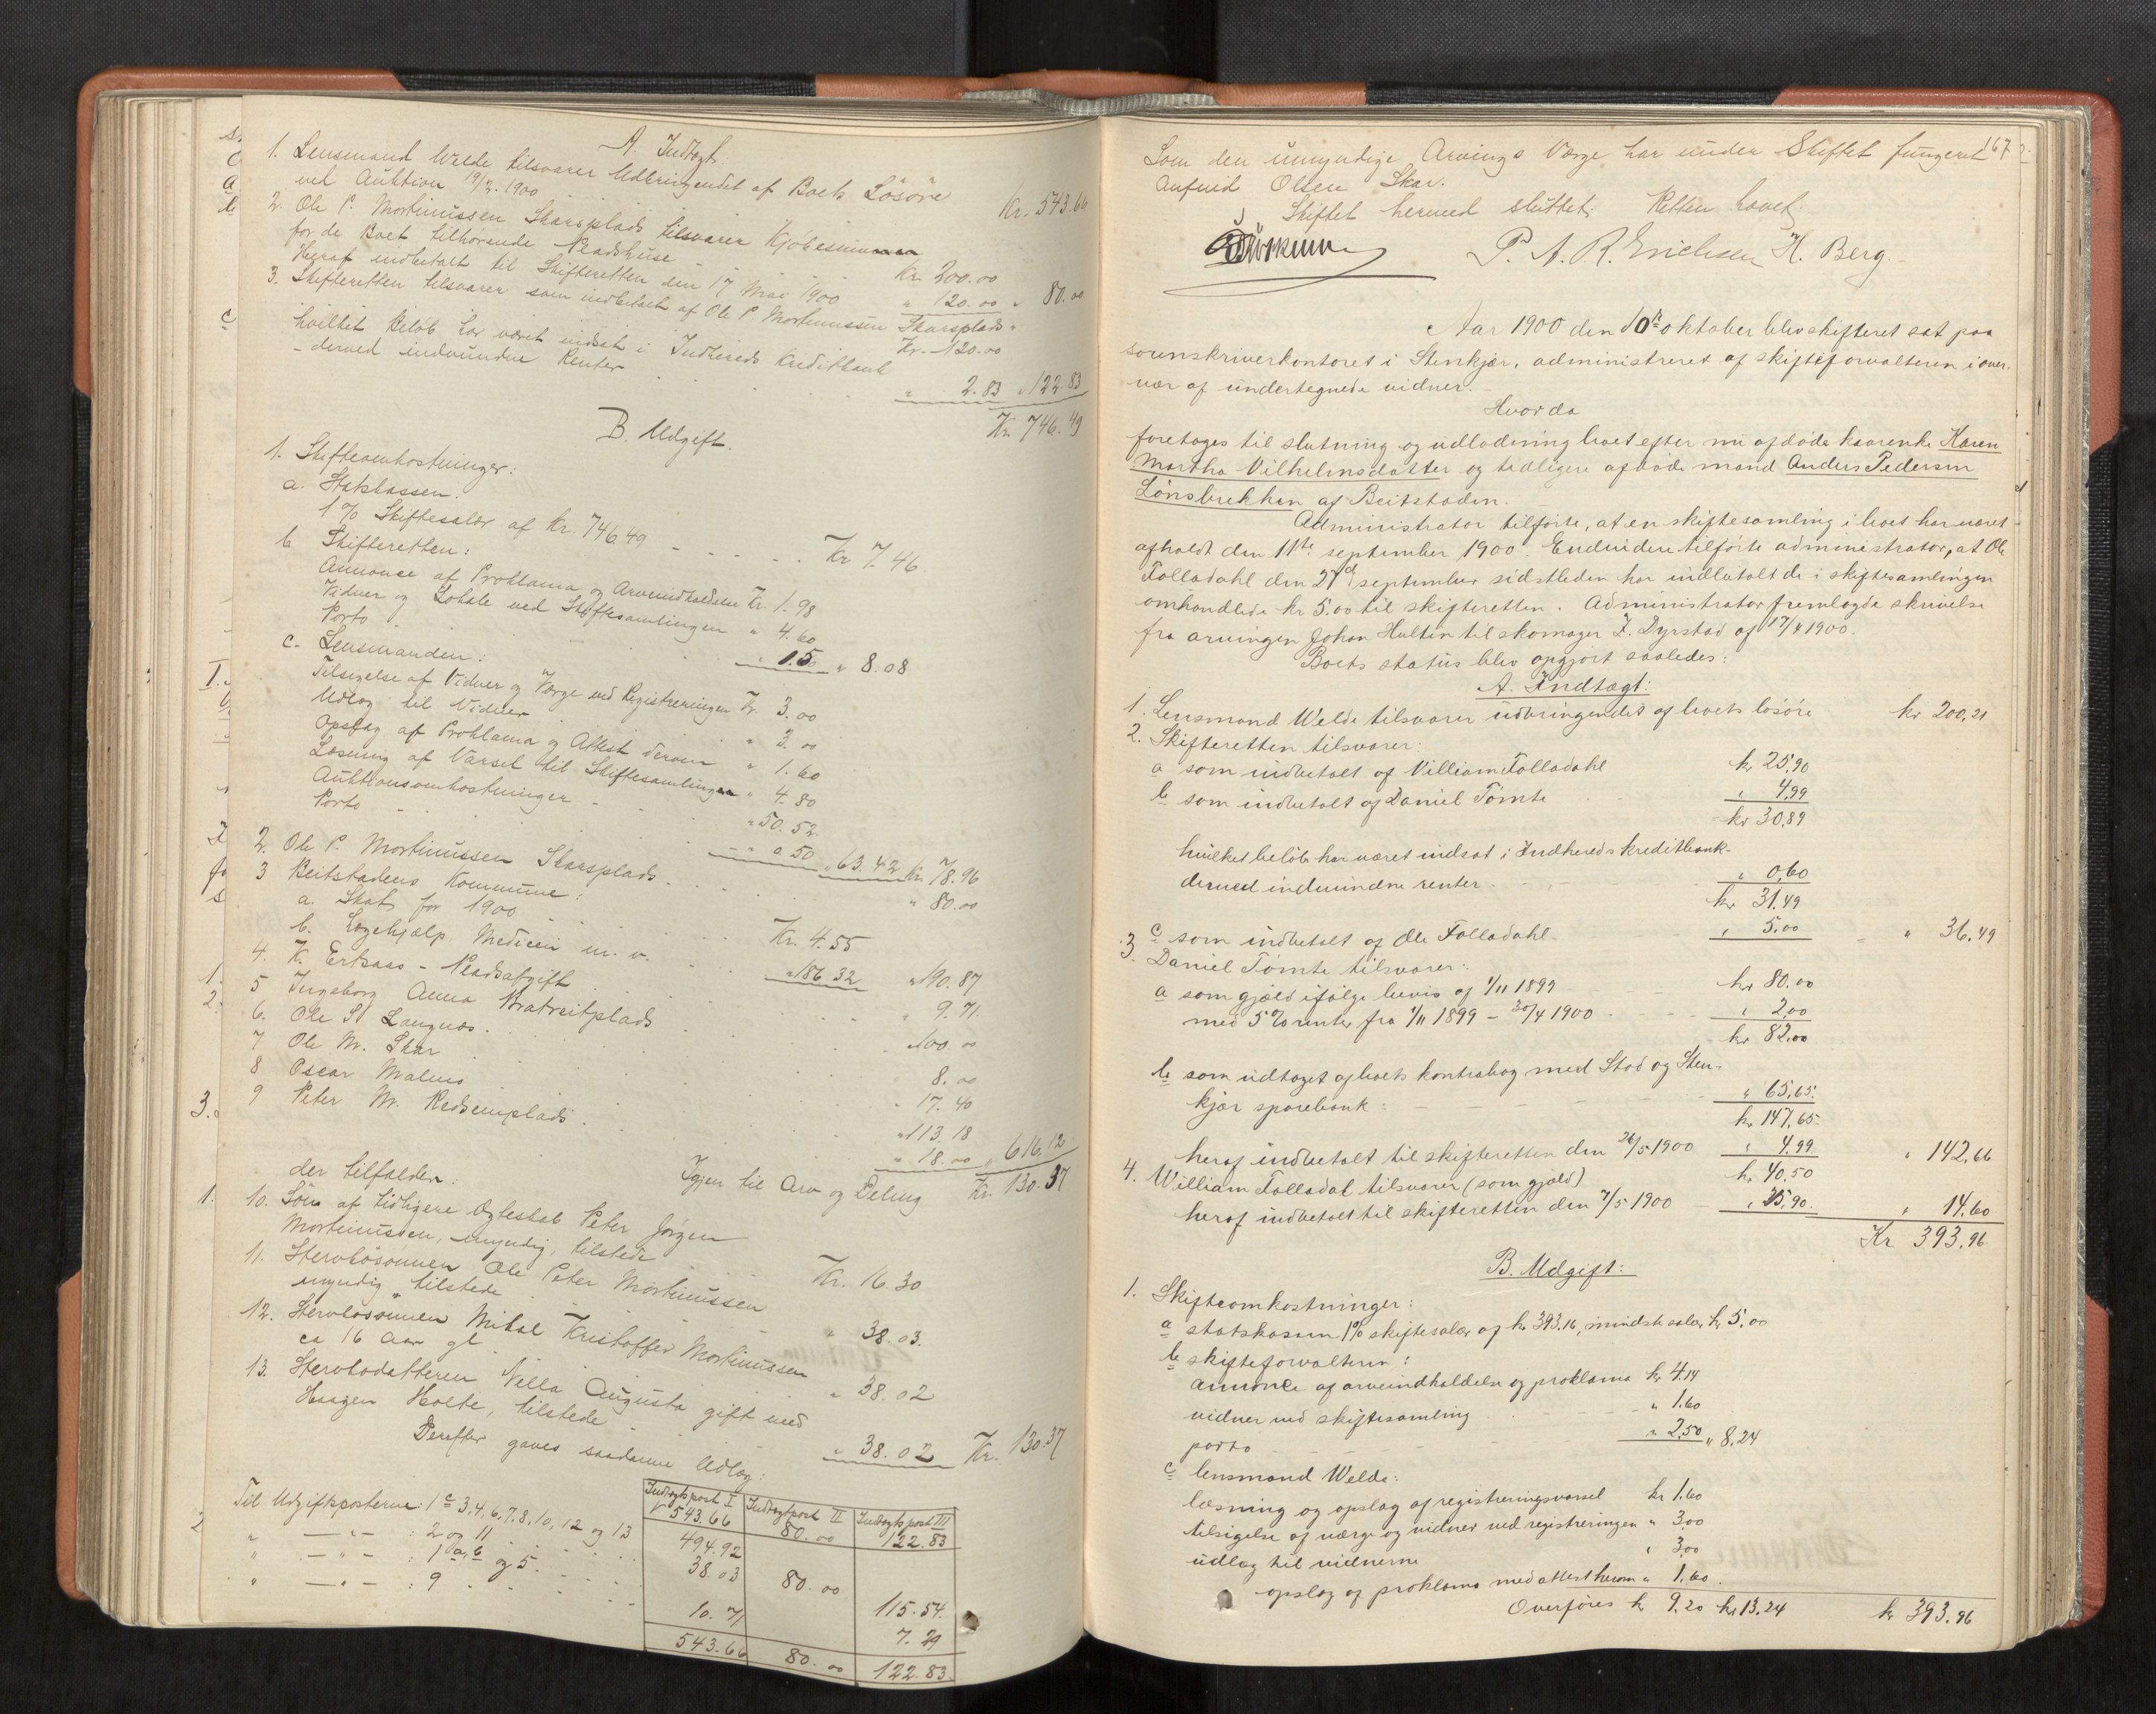 A. Indtægt.
1. Lensmand Welde tilsvarer Udbringendet af Boets Løsøre
ved Auktion 19/2. 1900 Kr. 543.66
2. Ole P. Mortinussen Skarsplads tilsvarer Kjøbesummen
for de Boet tilhørende Pladshuse Kr 200.00
Heraf indbetalt til Skifteretten den 17 Mai 1900 " 120.00 " 80.00
3. Skifteretten tilsvarer som indbetalt af Ole P Mortinussen Skarsplads
Kr. 120.00
hvilket Beløb har været indsat i Indhereds Kreditbank
- derved indvundne Renter " 2.83 " 122.83
Kr. 746.49
B. Udgift.
1. Skifteomkostninger:
a. Statskassen.
1% Skiftesalær af Kr. 746.49 - - - - - Kr 7.46
b Skifteretten:
Annonce af Proklama og Arveindkaldelse Kr. 1.98
Vidner og Lokale ved Skiftesamlingen " 4.60
Porto " 1.50 " 8.08
c. Lensmanden:
Tilsigelse af Vidner og Værge ved Registreringen Kr. 3.00
Udlog til Vidner " 3.00
Opslag af Proklama og Attest derom " 1.60
Læsning af Varsel til Skiftesamlingen " 4.80
Auktionsomkostninger " 50.52
Porto " 0.50 " 63.42 Kr. 78.96
2. Ole P. Mortinussen Skarsplads " 80.00
3 Beitstadens Kommune:
a. Skat for 1900 Kr. 4.55
b. Lægehjælp, Medicin m. v. " 186.32 " 190.87
4. K. Ertsaas - Pladsafgift " 9.71
5 Ingeborg Anna Bratreitplads " 100.00
6. Ole S. Langnes 8.00
7 Ole M. Skar " 17.40
8 Oscar Malmo " 113.18
9 Peter M. Redsemplads " 18.00 " 616.12
Igjen til Arv og Deling Kr. 130.37
der tilfalder:
10. Søn af tidligere Ægteskab Peter Jørgen
Mortinussen, umyndig, tilstede Kr. 16.30
11. Stervbosønnen Ole Peter Mortinussen
myndig, tilstede " 38.03.
12. Stervbosønnen Mikal Kristoffer Mortinussen
ca 16 Aar gl " 38.02
13. Stervbodatteren Nella Augusta gift med
Haagen Holte, tilstede " 38.02 Kr. 130.37
Derefter gaves saadanne Udlog:
Indtægtspost I Indtægtspost II Indtægtspost III
543.66 80.00 122.83
Til Udgiftsposterne: 1c 3, 4, 6, 7, 8, 10, 12 og 13 494.92
" — " — : 2 og 11 38.03 80.00
" — " — : 1 a, b og 5 115.54
" — " — : 9 10.71 7.29
543.66 80.00 122.83
167
Som den umyndige Arvings Værge har under Skiftet fungeret
Anfind Olsen Skar.
Skiftet hermed sluttet. Retten hævet.
P. A. R. Erichsen H. Berg.
Aar 1900 den 10de oktober blev skifteret sat paa
sorenskriverkontoret i Stenkjær, administreret af skifteforvalteren i over-
vær af undertegnede vidner.
Hvorda
foretoges til slutning og udlodning boet efter nu afdøde kaarenke Karen
Martha Vilhelmsdatter og tidligere afdøde mand Anders Pedersen
Lønsbrekken af Beitstaden.
Administrator tilførte, at en skiftesamling i boet har været
afholdt den 11te september 1900. Endvidere tilførte administrator, at Ole
Folladahl den 27de september sidstleden har indbetalt de i skiftesamlingen
omhandlede kr 5.00 til skifteretten. Administrator fremlagde skrivelse
fra arvingen Johan Hultin til skomager I. Dyrstad af 17/4 1900.
Boets status blev opgjort saaledes:
A. Indtægt:
1. Lensmand Welde tilsvarer udbringendet af boets løsøre kr 200,21
2. Skifteretten tilsvarer:
a som indbetalt af Villiam Folladahl kr 25,90
b som indbetalt af Daniel Tømte " 4,99
kr 30,89
hvilket beløb har været indsat i Indhereds kreditbank -
derved indvundne renter " 0,60
kr 31.49
c som indbetalt af Ole Folladahl " 5.00 " 36,49
3. Daniel Tømte tilsvarer:
a som gjæld ifølge bevis af 1/11 1899 kr 80.00
med 5% renter fra 1/11 1899 - 30/4 1900 " 2,00
kr 82,00
b som udtaget af boets kontrabog med Stod og Sten-
kjær sparebank: " 65,65.
kr 147,65
heraf indbetalt til skifteretten den 26/5 1900 " 4,99 " 142,66
4. William Folladal tilsvarer (som gjæld) kr 40,50
heraf indbetalt til skifteretten den 7/5 1900 " 25,90. " 14,60
Kr 393,96
B. Udgift:
1. Skifteomkostninger:
a statskassen 1% skiftesalær af kr 393.16, mindste salær kr 5,00
b skifteforvalteren:
annonce af arveindkaldelse og proklama kr 4.14
vidner ved skiftesamling " 1.60
porto " 2,50 " 8,24
c lensmand Welde:
læsning og opslag af registreringsvarsel kr 1.60
tilsigelse af værge og vidner ved registreringen " 3,00
udlæg til vidnerne " 3,00
opslag af proklama med attest herom " 1,60.
Overføres kr 9,20 kr 13.24 kr 393,96